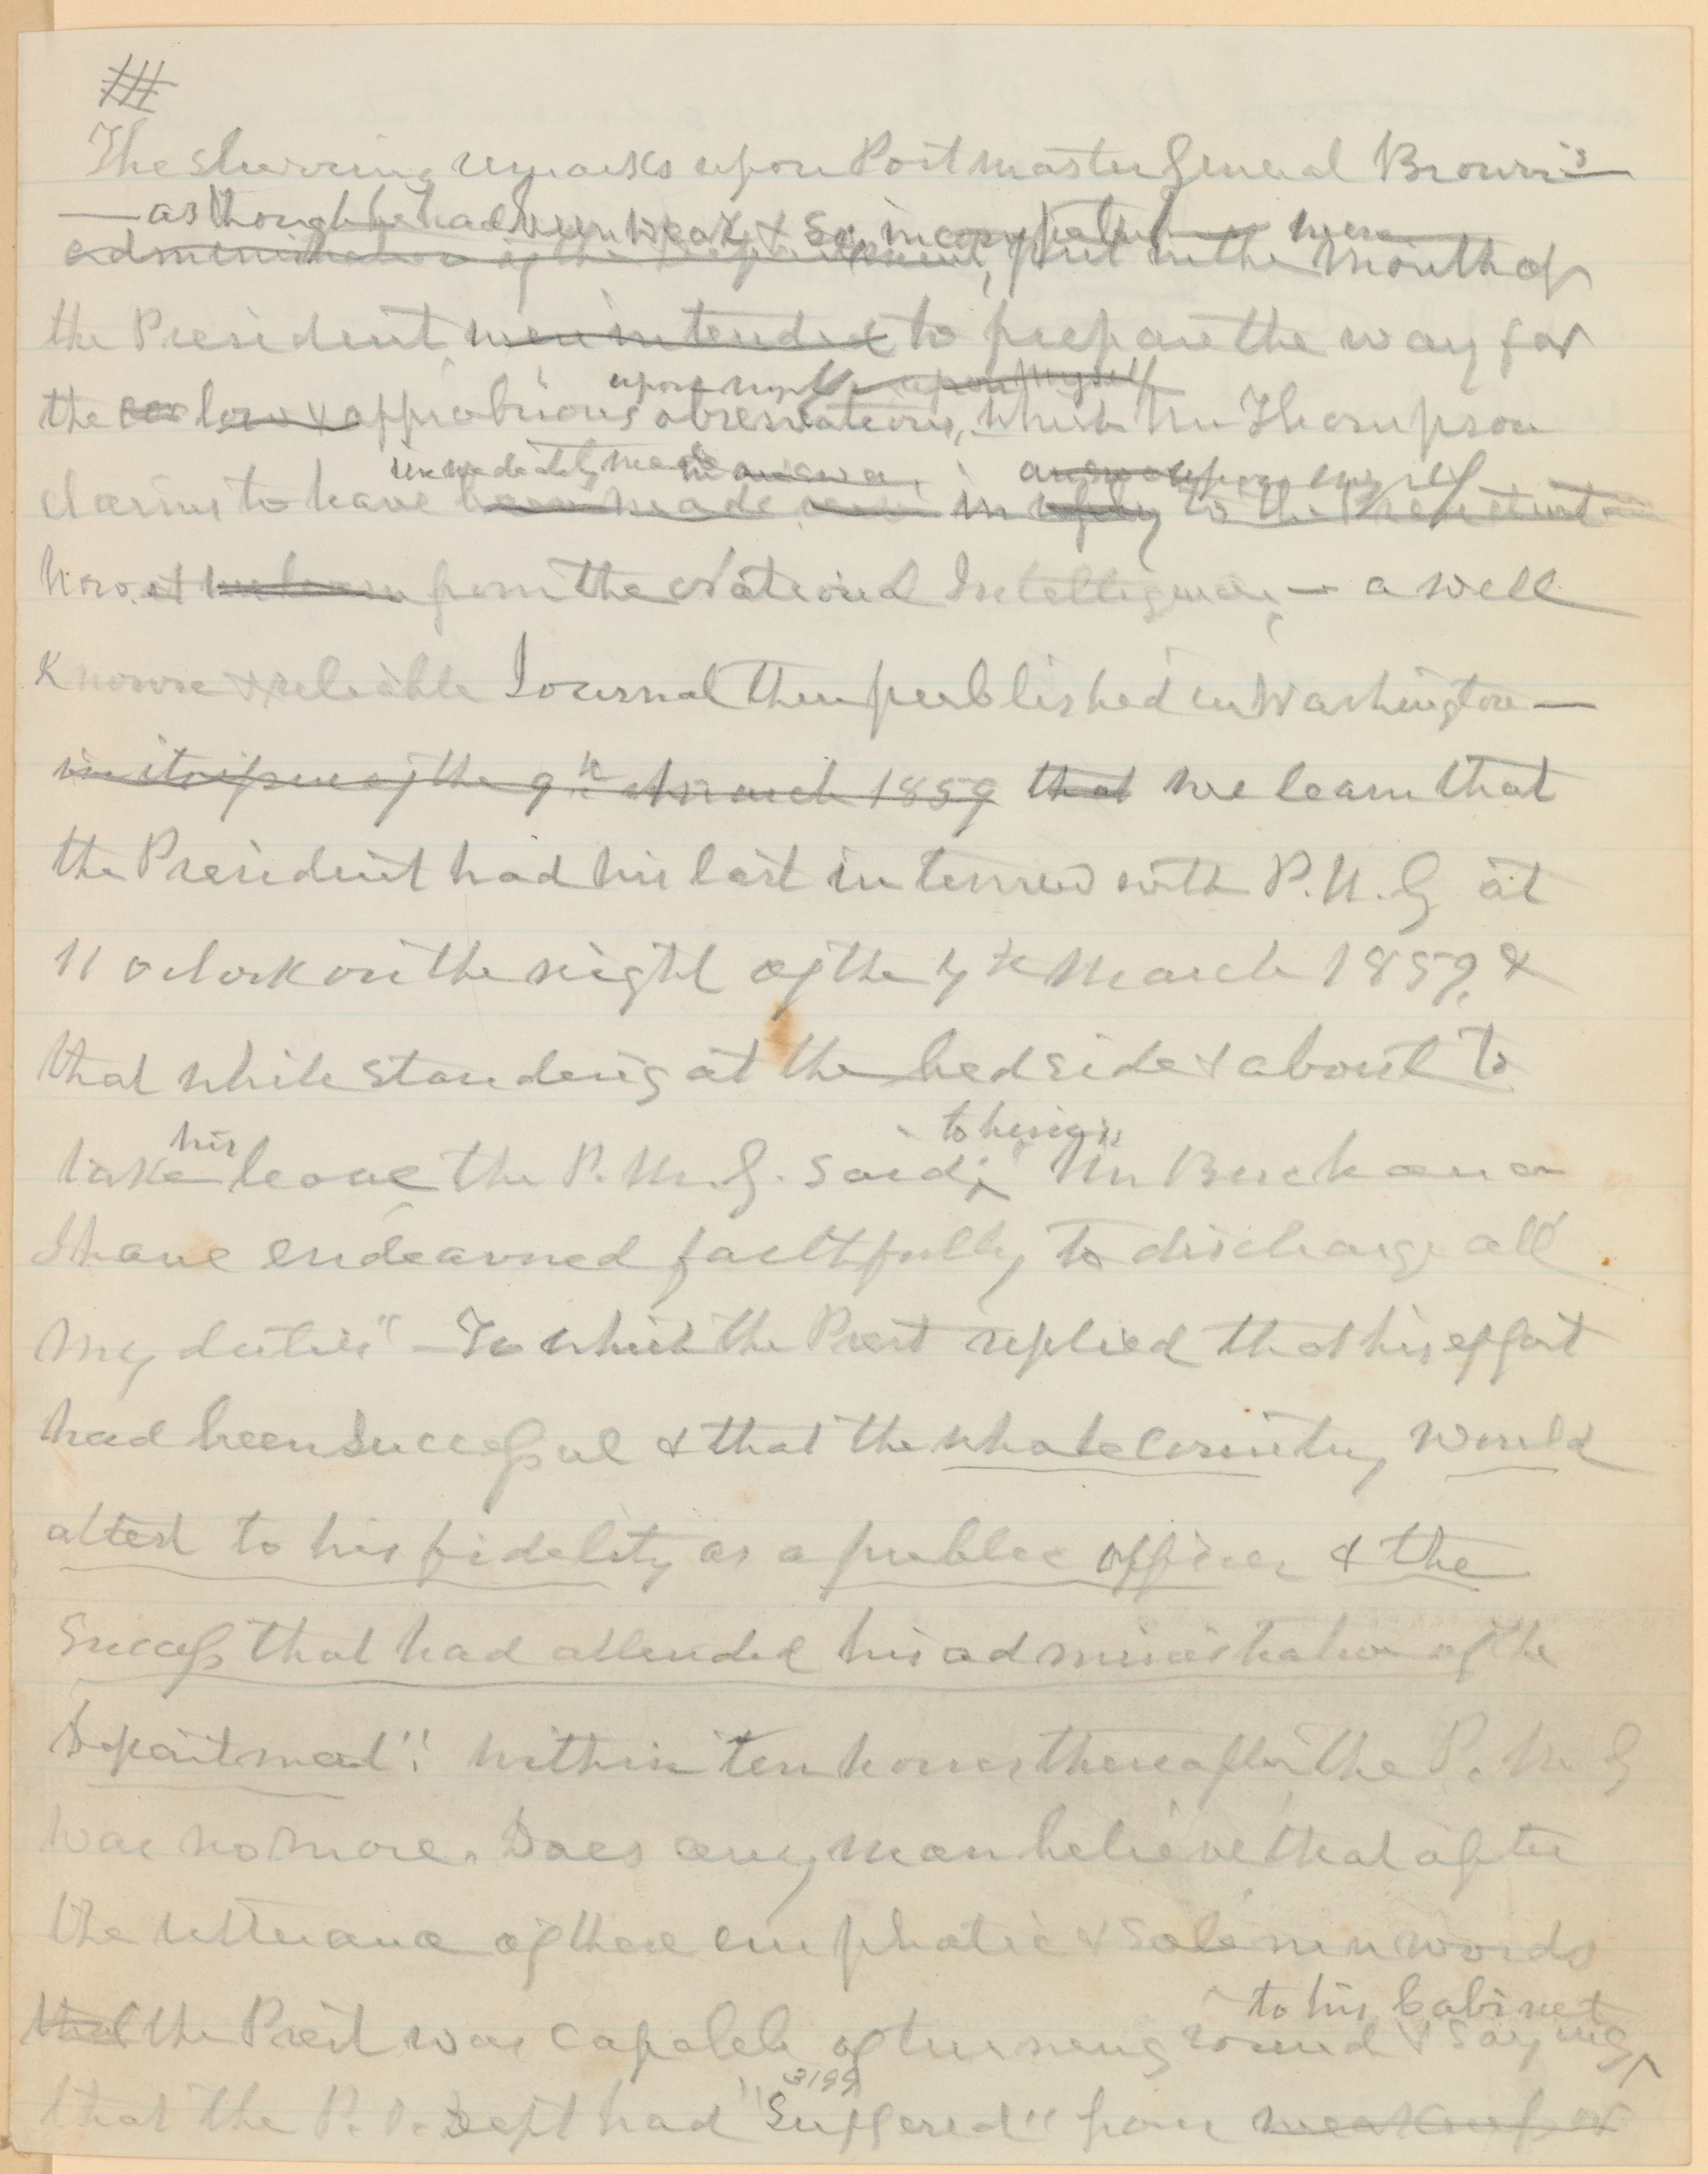 ###
The slurring remarks upon Post master General Brown's—
— as though he had been weak & so incompetent — were
administration of the Department, put in the mouth of
the President were intended to prepare the way for
upon myself upon myself
the low & opprobrious observations, which Mr Thompson
immediately made in answer answer upon myself
claims to have been made in reply to the President
Now, et we learn from the National Intelligencer — a well
Known & reliable Journal then published in Washington —
in its issue of the 9th March 1859 that we learn that
the President had his last interview with P.M.G at
11 oclock on the night of the 7th March 1859, &
that while standing at the bedside & about to
his to him
take leave the P.M.G. said; "Mr Buchanan
I have endeavored faithfully to discharge all
my duties" — To which the Prest replied that his effort
had been successful & that the whole country would
attest to his fidelity as a public officer & the
success that had attended his administration of the
Department". Within ten hours thereafter the P. M G
was no more. Does any man believe that after
the utterance of these emphatic & solemn words
to his Cabinet
that the Prest was capable of turning round & saying
3199
that the P. O. Dept had "suffered" from weakness or